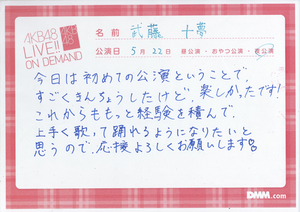 AKB48
LIVE!!
ON DEMAND
AKB48
名前 武藤 十夢
公演日 5月22日 昼公演・おやつ公演・夜公演
今日は初めての公演ということで、
すごくきんちょうしたけど、楽しかったです!
これからももっと経験を積んで、
上手く歌って踊れるようになりたいと
思うので、応援よろしくお願いします
DMM.com